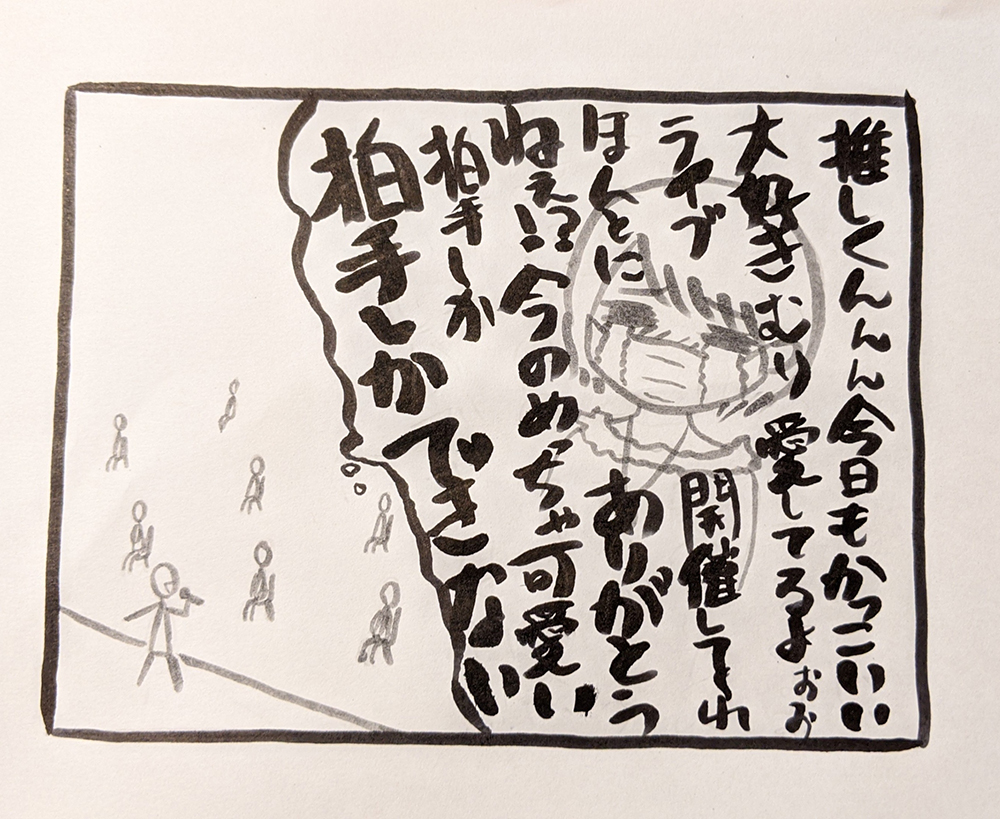 推しくんんん今日もかっこいい
大好きむり愛してるよぉぉ
ライブ開催してくれ
ほんとにありがとう
ねぇ!?今のめっちゃ可愛い
拍手しか
拍手しかできない